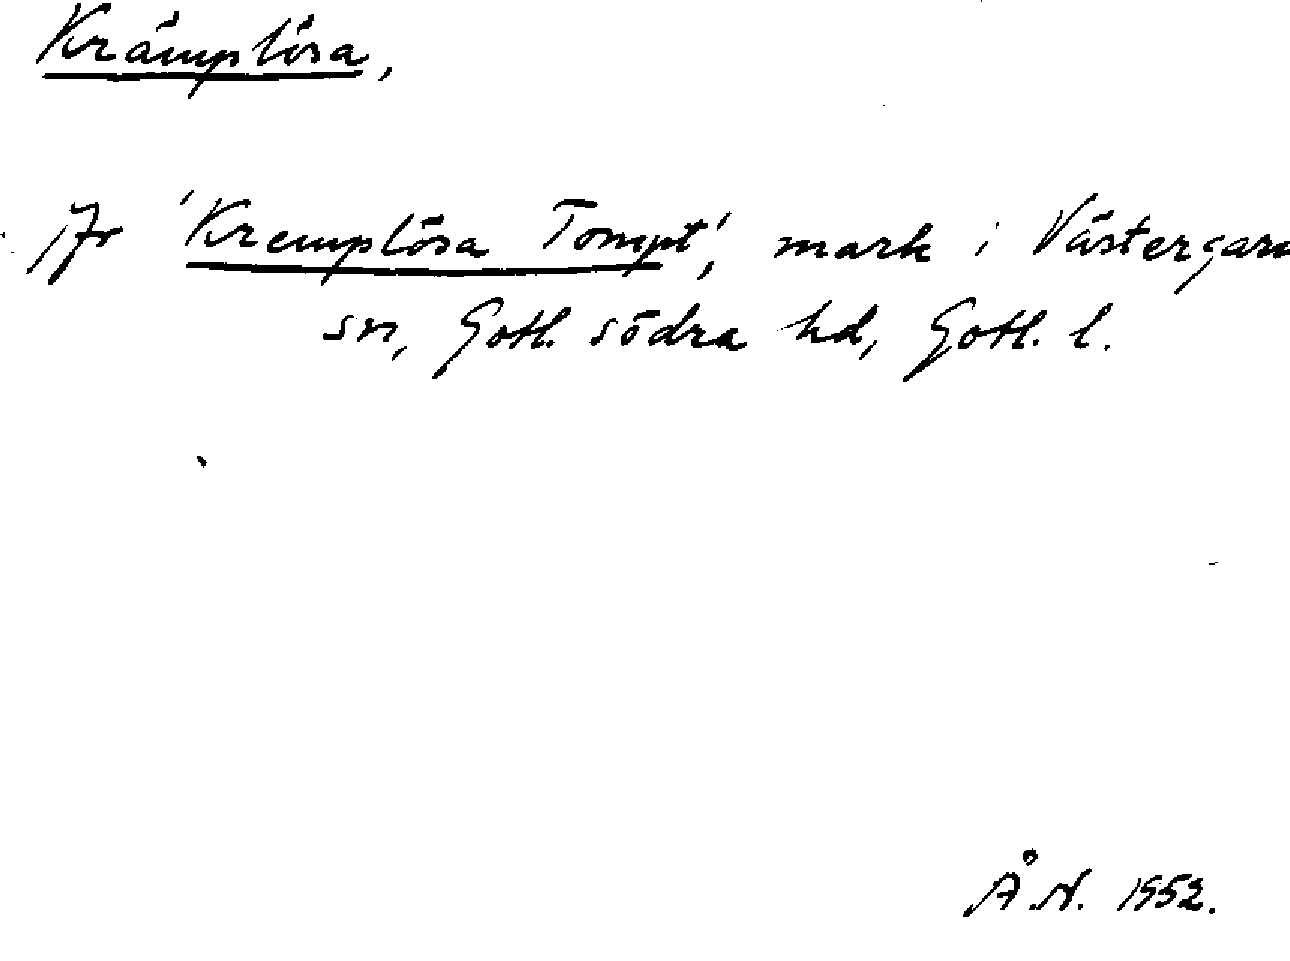 Krämplösa,
Jfr 'Kremplösa Tompt', mark i Västergarn
sn, Gotl. södra hd, Gotl. l.
Å.N. 1952.